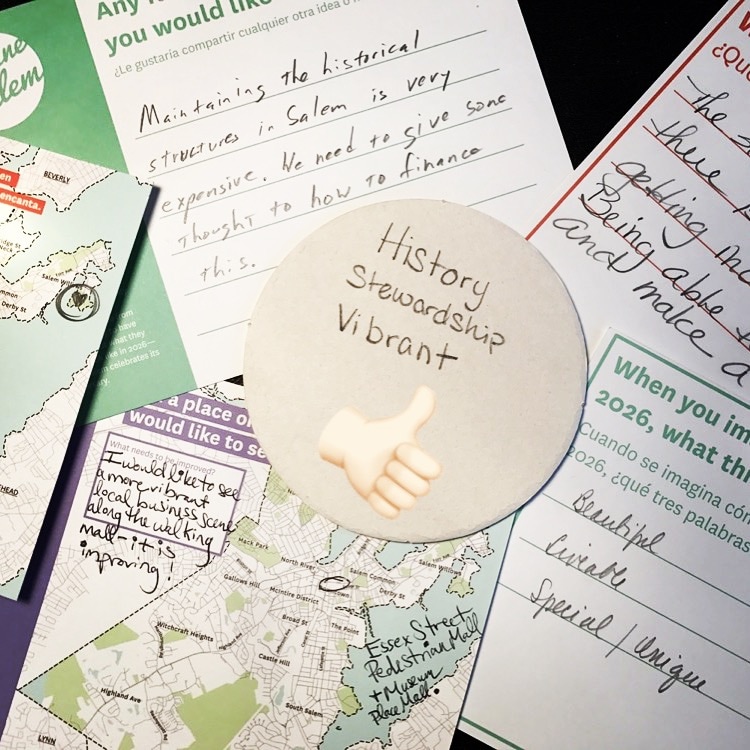 you would like
¿Le gustaría compartir cualquier otra idea
Maintaining the historical
structures in Salem is very
expensive. We need to give some
thought to how to finance
this.
en
encanta.
BEVERLY
Salem
Derby St
have
what they
like in 2026—
celebrates its
History
Stewardship
Vibrant
a place
would like to se
What needs to be improved?
I would like to see
a more vibrant
local business scene
along the walking
mall - it is
improving!
Mack Park
North River
Salem Common
Salem Willows
Gallows Hill
McIntire District
Derby St
Broad St
The Point
Witchcraft Heights
Castle Hill
Highland Ave
South Salem
LYNN
Essex Street
Pedestrian Mall
+ Museum
Place Mall.
¿Qué
The
there
getting
Being able
and make a
When you im
2026, what th
Cuando se imagina cóm
2026, ¿qué tres palabras
Beautiful
Liveable
Special / Unique